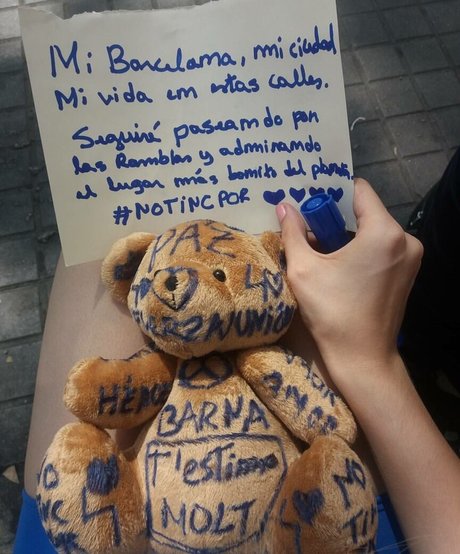 Mi Barcelona, mi ciudad
Mi vida en estas calles.
Seguiré paseando por
las Ramblas y admirando
el lugar más bonito del planeta.
#NOTINCPOR
PAZ
UNIÓN
BARNA
T'estimo
MOLT
NO
TINC
NO
TI